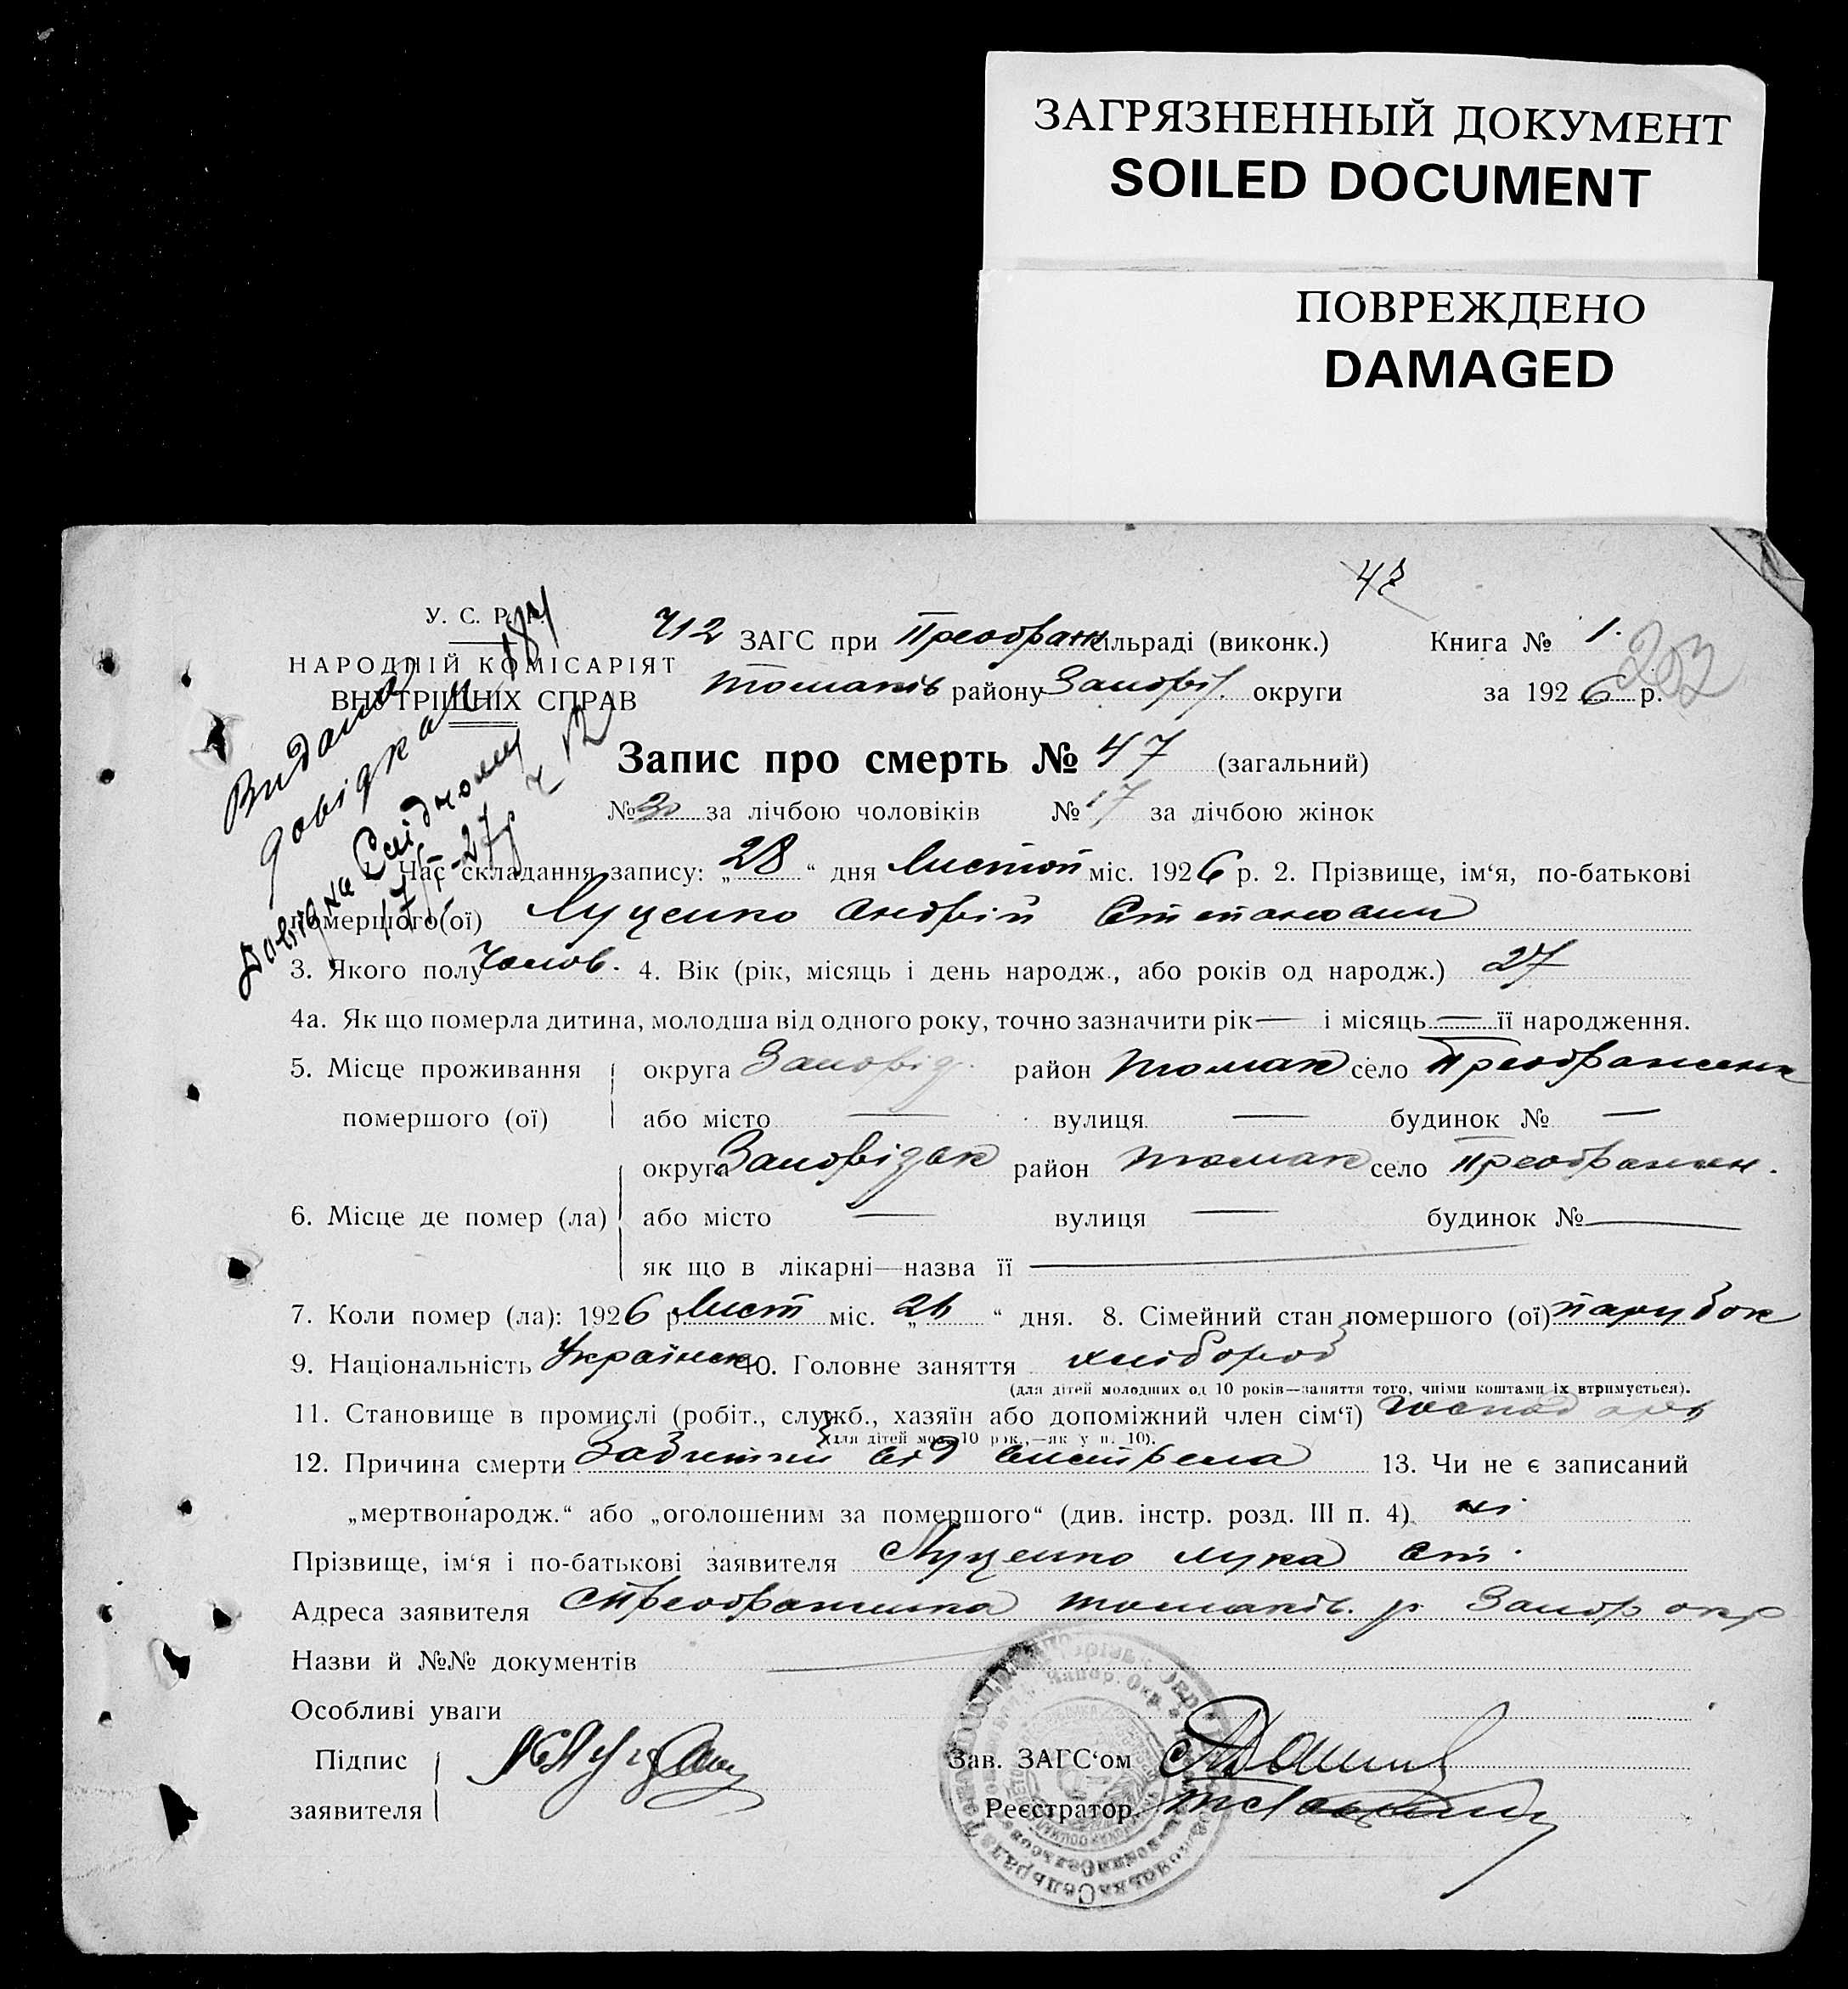 ЗАГРЯЗНЕННЫЙ ДОКУМЕНТ
SOILED DOCUMENT
ПОВРЕЖДЕНО
DAMAGED
47
У. С. Р. Р. 712 ЗАГС при Преображ сільраді (виконк.) Книга № 1. 202
НАРОДНІЙ КОМІСАРІЯТ
ВНУТРІШНІХ СПРАВ Томаків району Запоріз. округи за 1926 р.
Видано
довідка
Запис про смерть № 47 (загальний)
№ 30 за лічбою чоловіків № 17 за лічбою жінок
Час складання запису: „28“ дня Листоп міс. 1926 р. 2. Прізвище, ім‘я, по-батькові
помершого(ої) Луценко Андрій Степанович
3. Якого полу Чолов. 4. Вік (рік, місяць і день народж., або років од народж.) 27
4а. Як що померла дитина, молодша від одного року, точно зазначити рік — і місяць — її народження.
5. Місце проживання округа район Томак село Преображенк
помершого (ої) або місто — вулиця — будинок № —
округа район Томак село Преображен.
6. Місце де помер (ла) або місто — вулиця — будинок № —
як що в лікарні—назва її —
7. Коли помер (ла): 1926 р. Лист міс. „26“ дня. 8. Сімейний стан помершого (ої) парубок
9. Національність Українец 10. Головне заняття хлібороб
(для дітей молодших од 10 років—заняття того, чиїми коштами їх втримується).
11. Становище в промислі (робіт., службб., хазяїн або допоміжний член сім‘ї) господарь
(для дітей мол. 10 рок.,—як у п. 10).
12. Причина смерти Забитий від вистрела 13. Чи не є записаний
„мертвонародж.“ або „оголошеним за помершого“ (див. інстр. розд. III п. 4) ні
Прізвище, ім‘я і по-батькові заявителя Луценко Лука Ст.
Адреса заявителя с Преображенка Томаків. р. Запор окр
Назви й №№ документів
Особливі уваги
Підпис Зав. ЗАГС‘ом
заявителя Реєстратор